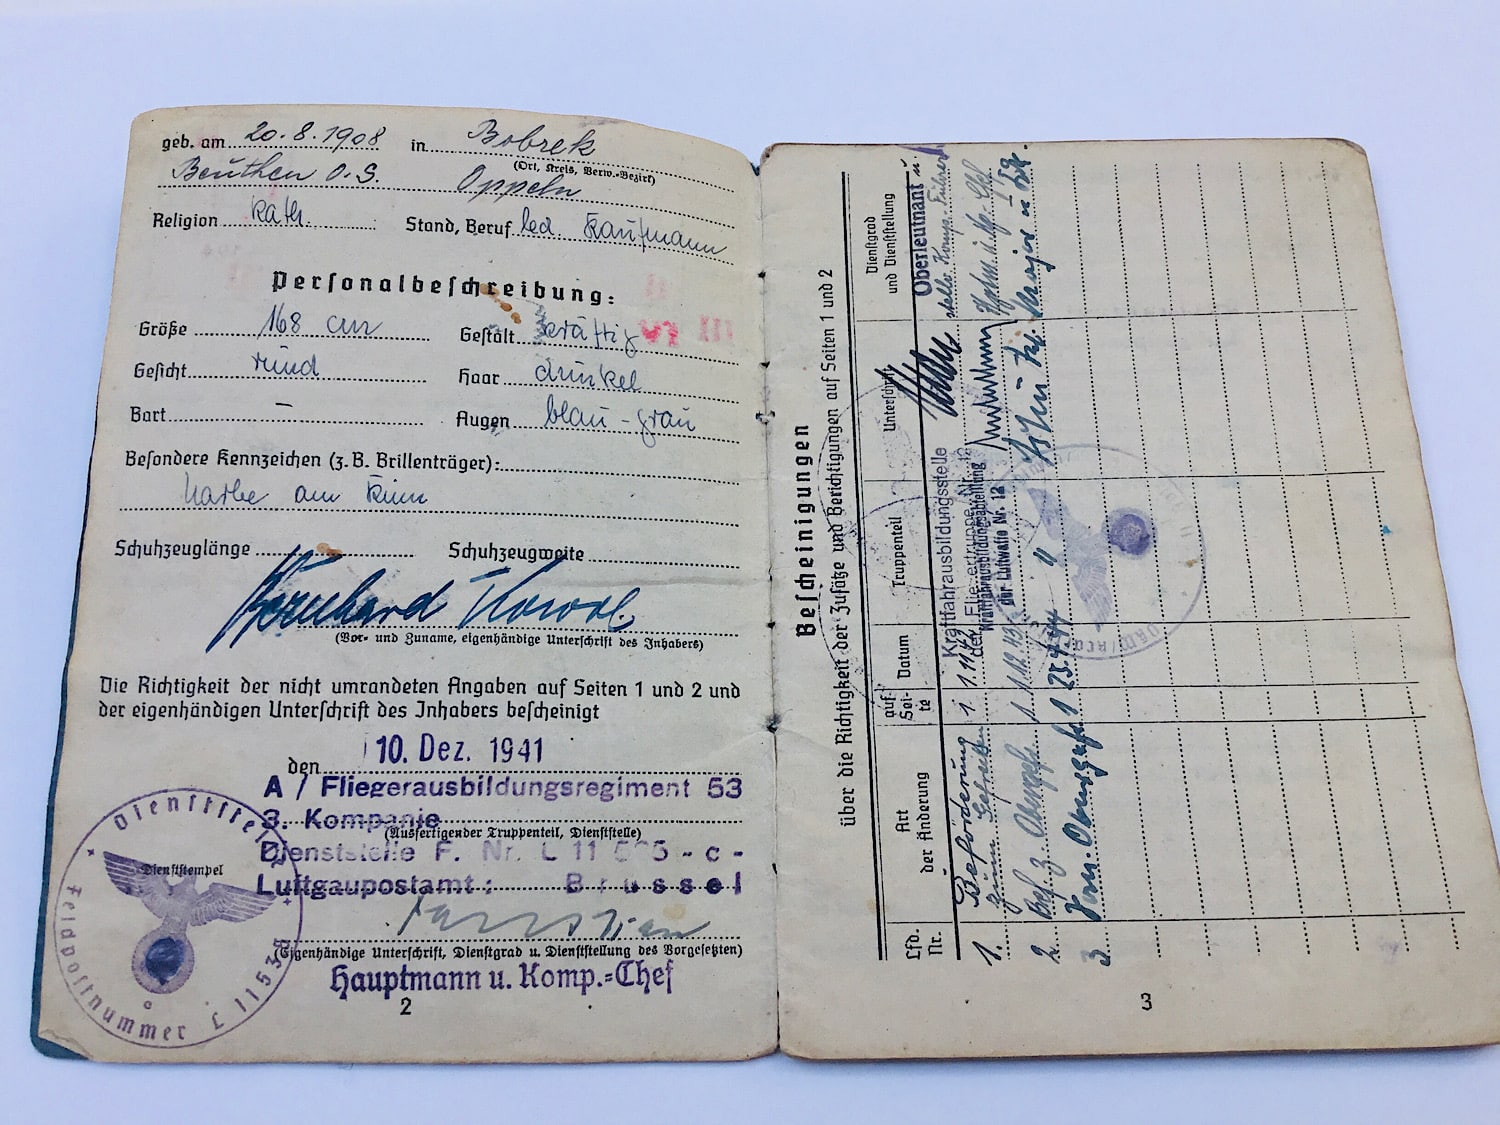 geb. am 20.8.1908 in Bobrek
(Ort, Kreis, Verw.-Bezirk)
Beuthen O.S. Oppeln
Religion kath. Stand, Beruf led. Kaufmann
Personalbeschreibung:
Größe 168 cm Gestalt kräftig
Gesicht rund Haar dunkel
Bart – Augen blau-grau
Besondere Kennzeichen (z. B. Brillenträger):
Narbe am Kinn
Schuhzeuglänge Schuhzeugweite
Bernhard
(Vor- und Zuname, eigenhändige Unterschrift des Inhabers)
Die Richtigkeit der nicht umrandeten Angaben auf Seiten 1 und 2 und
der eigenhändigen Unterschrift des Inhabers bescheinigt
den 10. Dez. 1941
A / Fliegerausbildungsregiment 53
3. Kompanie
(Ausfertigender Truppenteil, Dienststelle)
Dienststelle F. Nr. L 11 - c -
Luftgaupostamt: Brüssel
Dienststempel
Dienststelle Feldpostnummer L 1153
(Eigenhändige Unterschrift, Dienstgrad u. Dienststellung des Vorgesetzten)
Hauptmann u. Komp.=Chef
2
Bescheinigungen
über die Richtigkeit der Zusätze und Berichtigungen auf Seiten 1 und 2
Lfd. Nr. Art der Änderung auf Seite Datum Truppenteil Unterschrift Dienstgrad und Dienststellung
1. Beförderung zum Gefreiten 1. Kraftfahrausbildungsstelle der Fliegertruppe Nr. Oberleutnant u.
2. Bef. z. 1. Kraftfahrausbildungsabteilung der Luftwaffe Nr. 12
3. 1 " Major u.
3